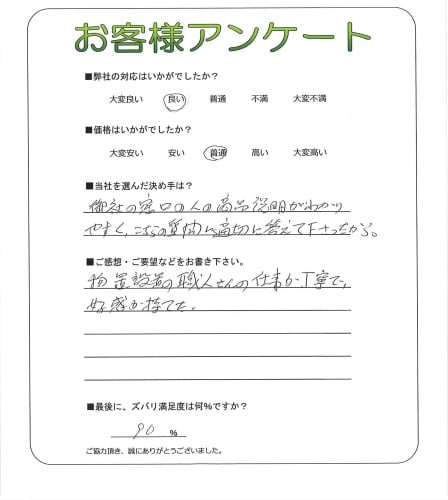 お客様アンケート
■弊社の対応はいかがでしたか?
大変良い 良い 普通 不満 大変不満
■価格はいかがでしたか?
大変安い 安い 普通 高い 大変高い
■当社を選んだ決め手は?
御社の窓口の人の商品説明がわかり
やすく、こちらの質問に適切に答えて下さったから。
■ご感想・ご要望などをお書き下さい。
物置設置の職人さんの仕事が丁寧で、
好感が持てた。
■最後に、ズバリ満足度は何%ですか?
90 %
ご協力頂き、誠にありがとうございました。